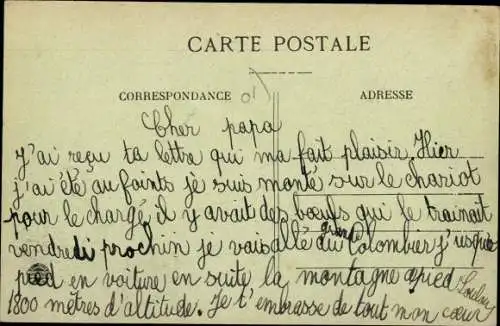 CARTE POSTALE
CORRESPONDANCE
ADRESSE
Cher papa
J'ai reçu ta lettre qui ma fait plaisir. Hier
j'ai été au foints je suis monté sur le chariot
pour le chargé il y avait des bœufs qui le trainait
vendredi prochin je vais allé du grand Colombier j'usque
pied en voiture en suite la montagne apied
1800 mètres d'altitude. Je t'embrasse de tout mon cœur
Loulou